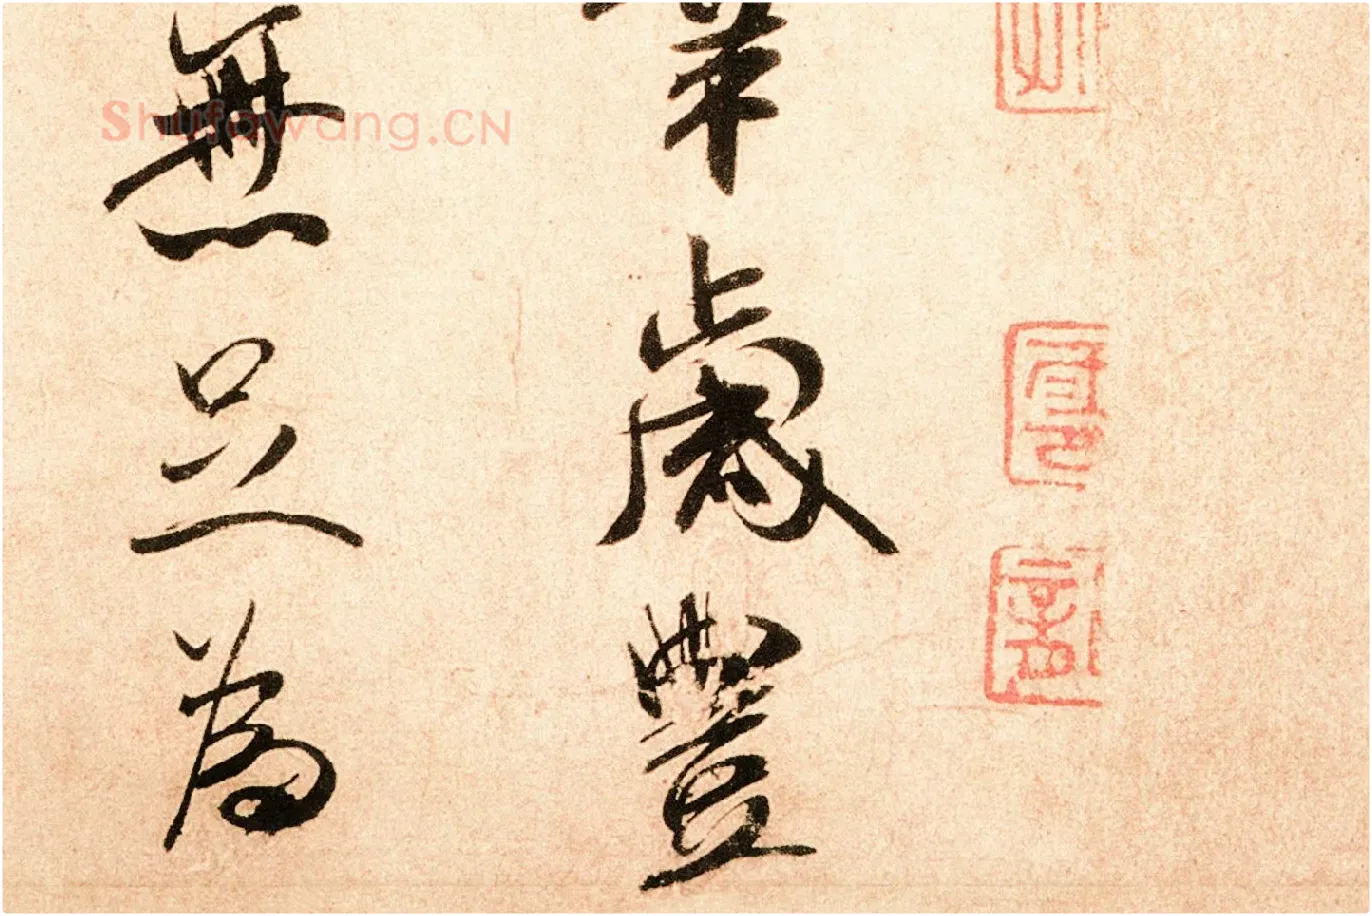 歲豐
無足為
Shufawang.CN